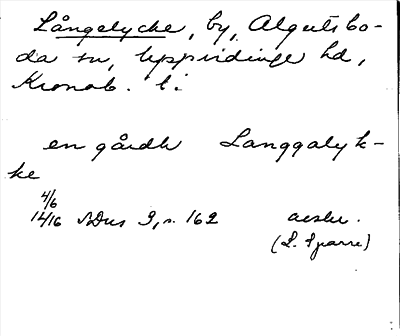 Långelycke, by, Algutsbo-
da sn, Uppvidinge hd,
Kronob. l.
en gårdh Langgalyk-
ke
4/6
1416 SDns 3, s. 162 avskr.
(L. Sparre)